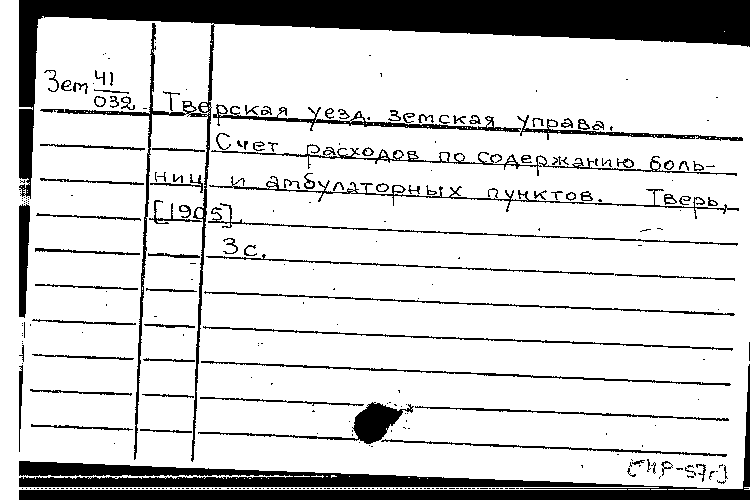 Зем 41/032 Тверская уезд. земская управа.
Счет расходов по содержанию боль-
ниц и амбулаторных пунктов. Тверь,
[1905].
3 с.